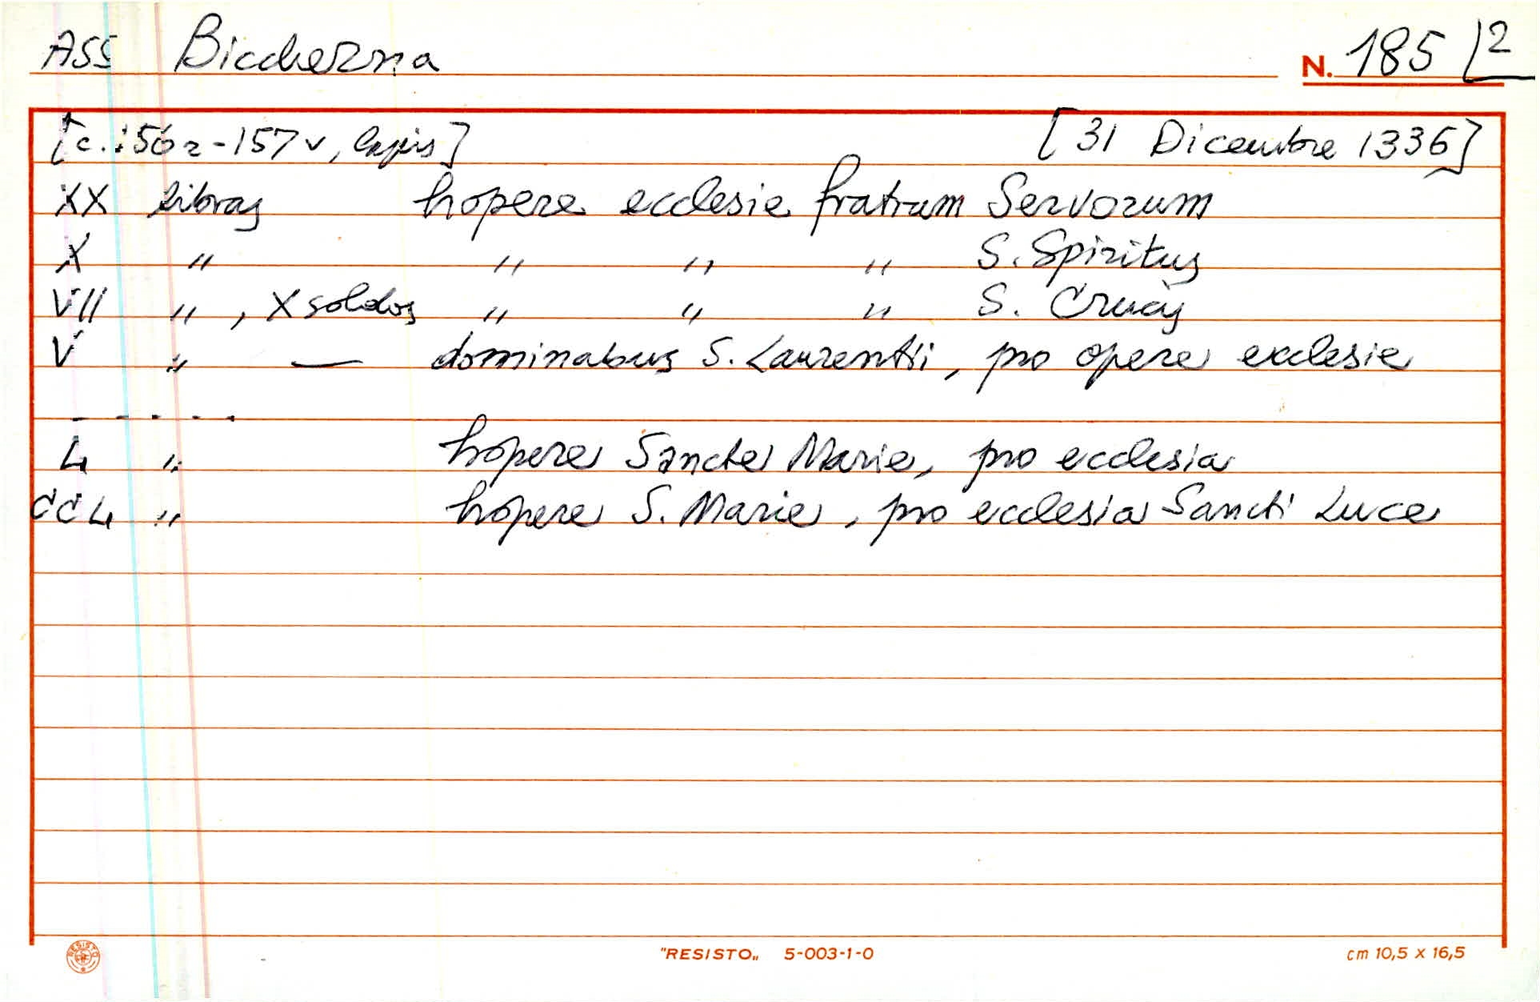 ASS Biccherna N. 185 2
[c. 156r-157v, lapis] [31 Dicembre 1336]
XX libras hopere ecclesie fratrum Servorum
X " " " " S. Spiritus
VII " , X soldos " " " S. Crucis
V " — dominabus S. Laurentii, pro opere ecclesie
- - - - -
L " hopere Sancte Marie, pro ecclesia
CCL " hopere S. Marie, pro ecclesia Sancti Luce
RESISTO
"RESISTO„ 5-003-1-0 cm 10,5 x 16,5